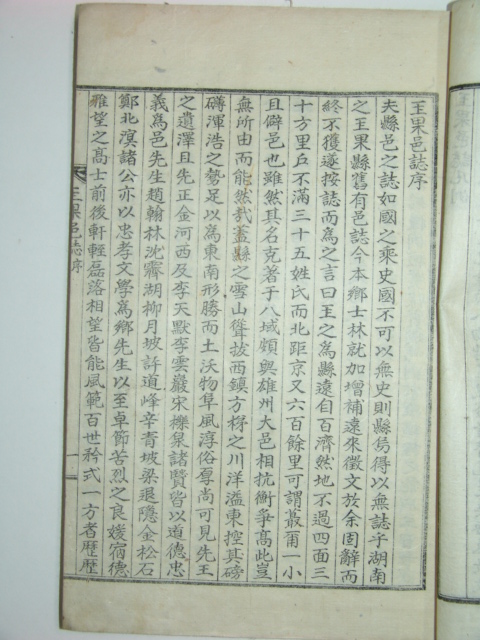 玉果邑誌序
夫縣邑之誌如國之乘史國不可以無史則縣烏得以無誌乎湖南
之玉果縣舊有邑誌今本鄉士林就加增補遠來徵文於余固辭而
終不獲遂按誌而為之言曰玉之為縣遠自百濟然地不過四面三
十方里戶不滿三十五姓氏而北距京又六百餘里可謂蕞爾一小
且僻邑也雖然其名克著于八域頗與雄州大邑相抗衡爭高此豈
無所由而能然哉蓋縣之雪山聳拔西鎮方梯之川洋溢東控其磅
礴渾浩之勢足以為東南形勝而土沃物阜風淳俗厚尚可見先王
之遺澤且先正金河西及李天默李雲巖宋櫟泉諸賢皆以道德忠
義為邑先生趙翰林沈霽湖柳月坡許道峰辛青坡梁退隱金松石
鄭北溟諸公亦以忠孝文學為鄉先生以至卓節苦烈之良媛宿德
雅望之高士前後軒輊磊落相望皆能風範百世矜式一方者歷歷
玉果邑誌序
一